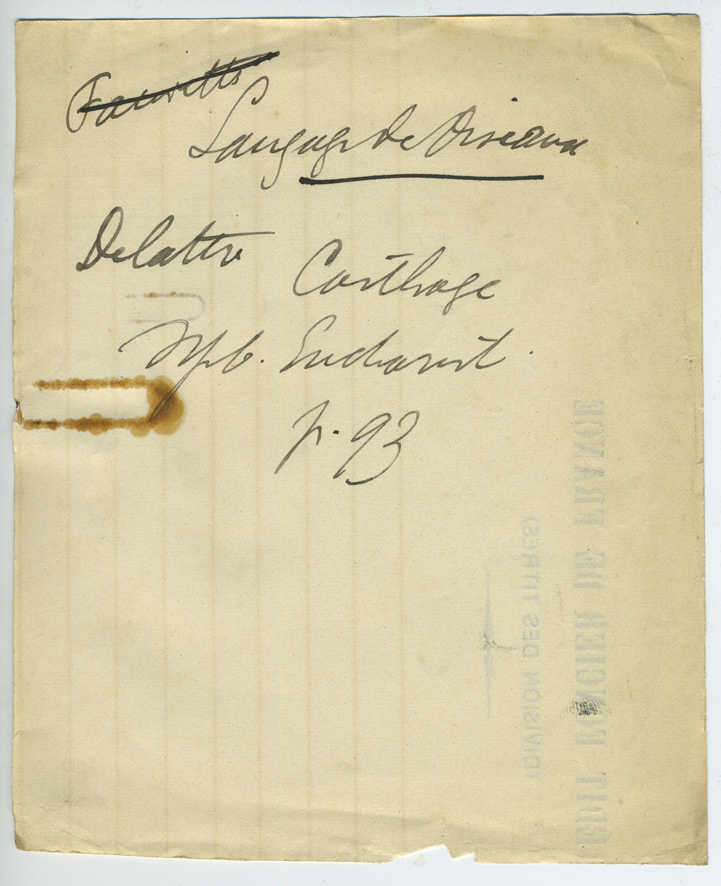 Fauvette
Langage des Oiseaux
Delattre Carthage
Symb. Eucharist.
p. 93
(DIVISION DES TITRES)
CRÉDIT FONCIER DE FRANCE